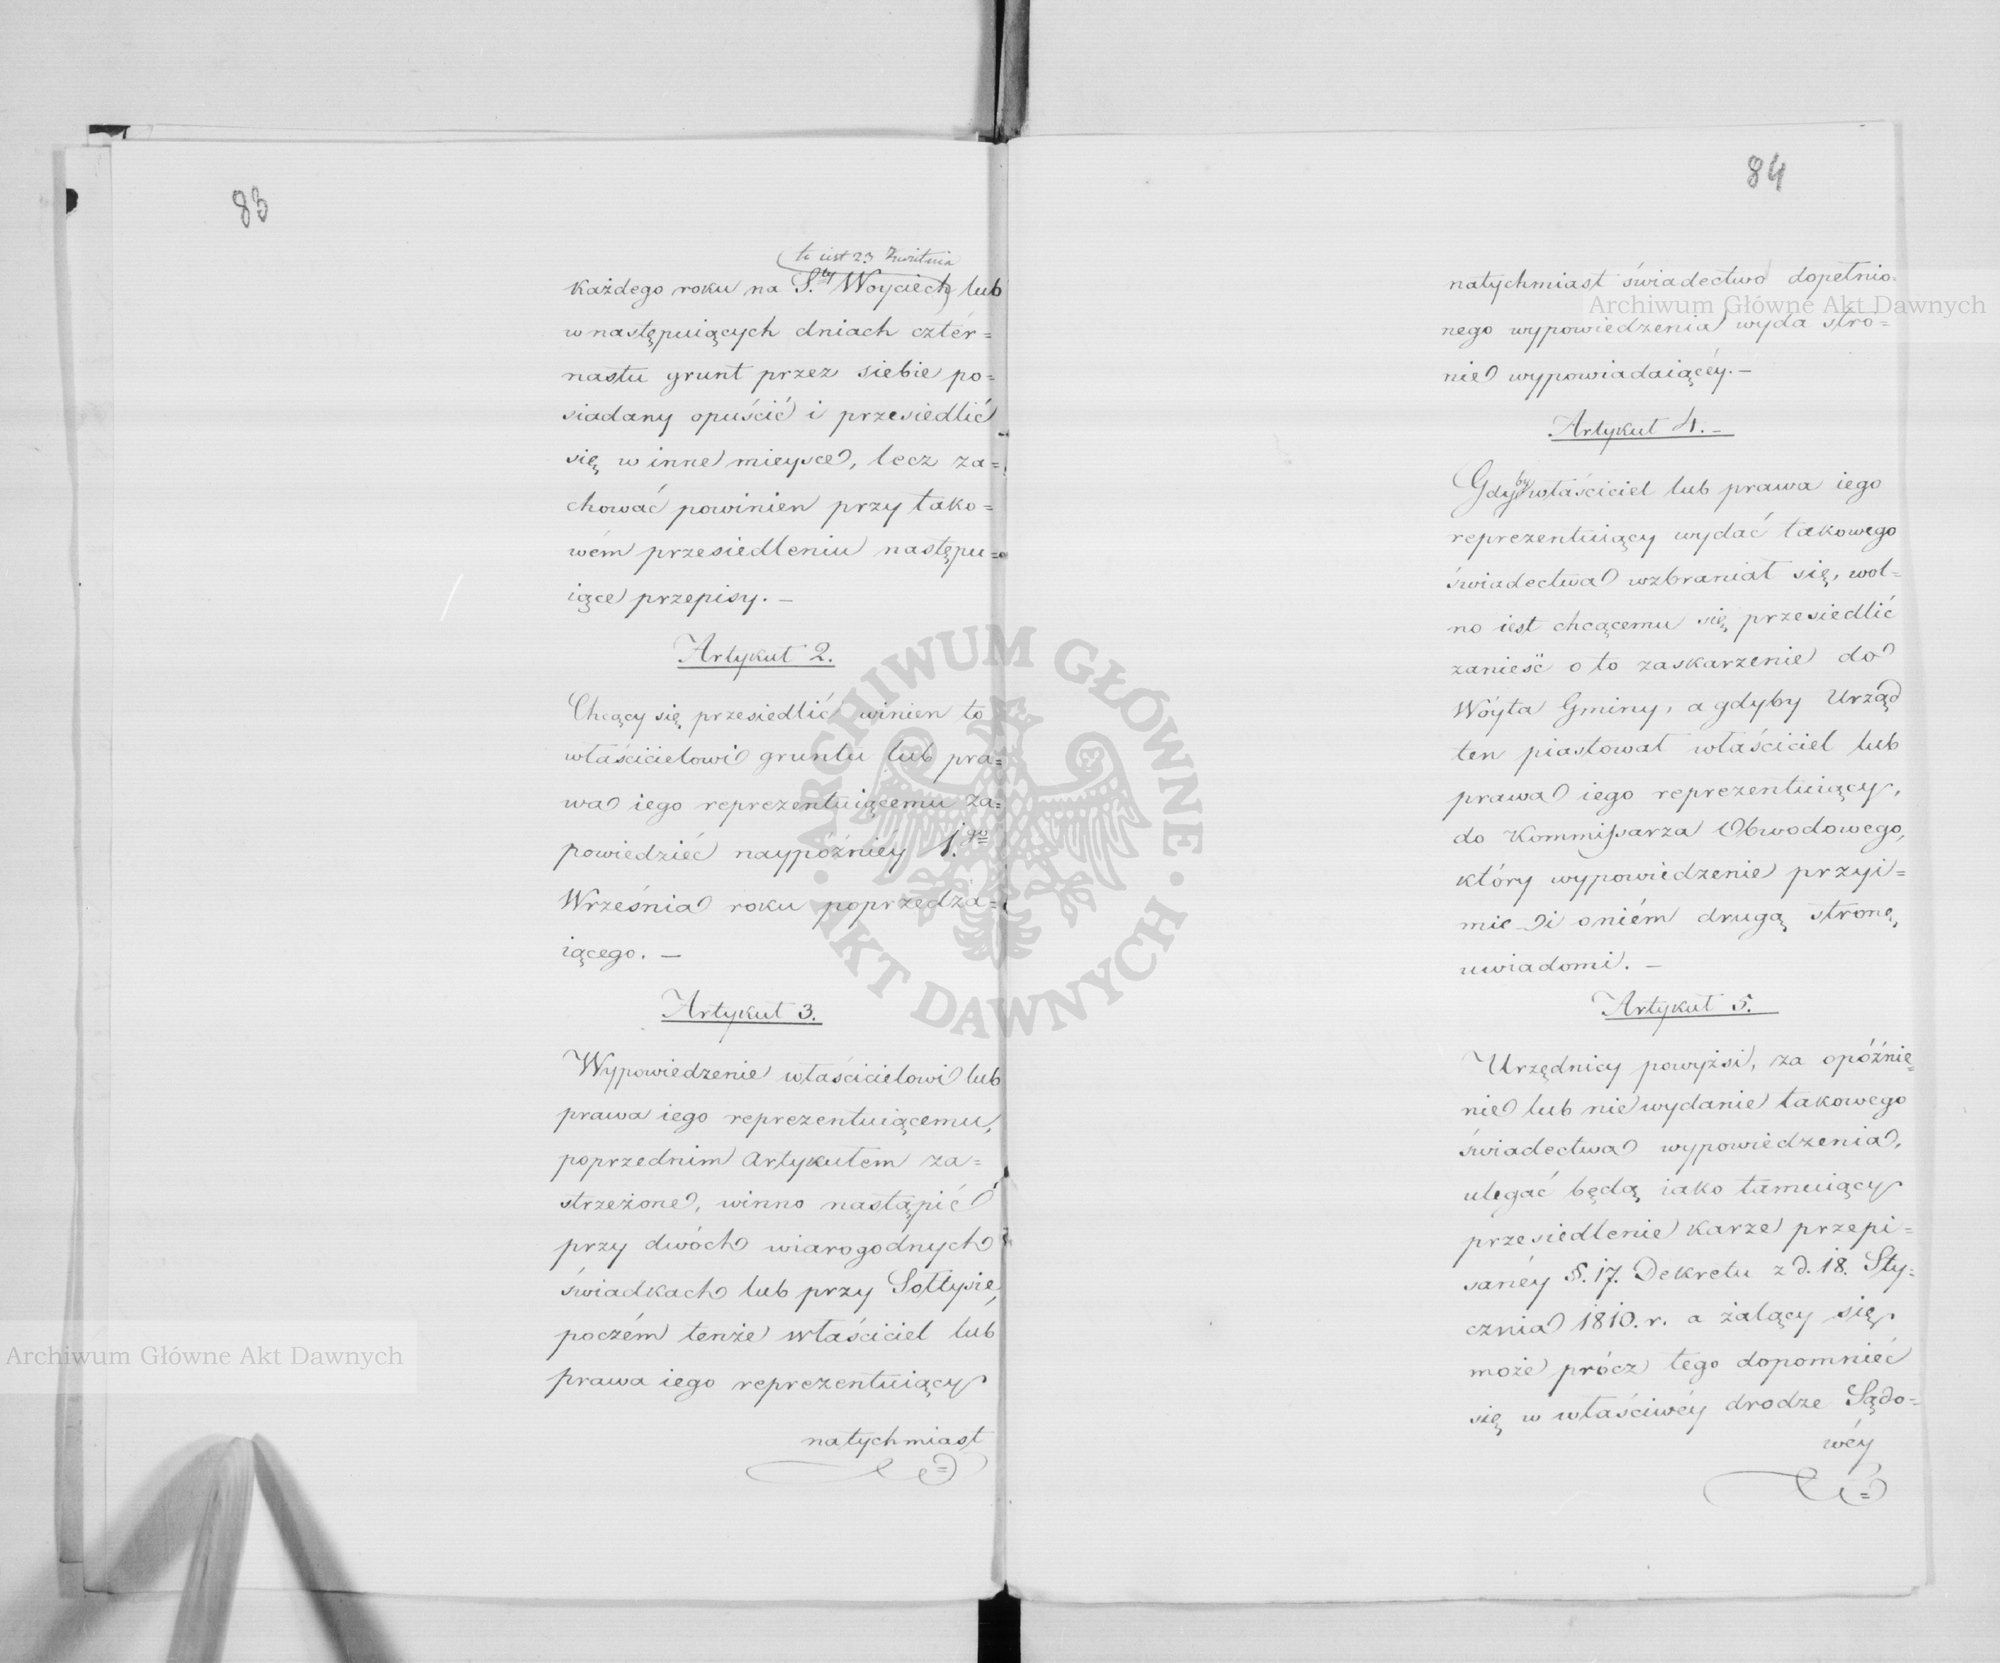 83
to iest 23 Kwietnia
każdego roku na S.ty Woyciech lub
w następuiących dniach czter=
nastu grunt przez siebie po=
siadany opuścić i przesiedlić
się w inne mieysce, lecz za=
chować powinien przy tako=
wém przesiedleniu następu=
iące przepisy. —
Artykuł 2.
Chcący się przesiedlić winien to
właścicielowi gruntu lub pra=
wa iego reprezentuiącemu za=
powiedzieć naypóźniéy 1.go
Września roku poprzedza=
iącego. —
Artykuł 3.
Wypowiedzenie właścicielowi lub
prawa iego reprezentuiącemu,
poprzednim Artykułem za=
strzeżone, winno nastąpić
przy dwóch wiarogodnych
świadkach lub przy Sołtysie,
poczém tenże właściciel lub
prawa iego reprezentuiący
natychmiast
84
natychmiast świadectwo dopełnio=
nego wypowiedzenia wyda stro=
nie wypowiadaiącéy. —
Artykuł 4. —
Gdyby właściciel lub prawa iego
reprezentuiący wydać takowego
świadectwa wzbraniał się, wol=
no iest chcącemu się przesiedlić
zanieść o to zaskarzenie do
Wóyta Gminy, a gdyby Urząd
ten piastował właściciel lub
prawa iego reprezentuiący,
do Kommissarza Obwodowego,
który wypowiedzenie przyi=
mie i o niém drugą stronę
uwiadomi. —
Artykuł 5.
Urzędnicy powyżsi, za opóźnie=
nie lub nie wydanie takowego
świadectwa wypowiedzenia,
ulegać będą iako tamuiący
przesiedlenie karze przepi=
sanéy §. 17. Dekretu z d. 18. Sty=
cznia 1810. r. a żalący się
może prócz tego dopomnieć
się w właściwéy drodze Sądo=
wéy
Archiwum Główne Akt Dawnych
Archiwum Główne Akt Dawnych
ARCHIWUM GŁÓWNE · AKT DAWNYCH ·